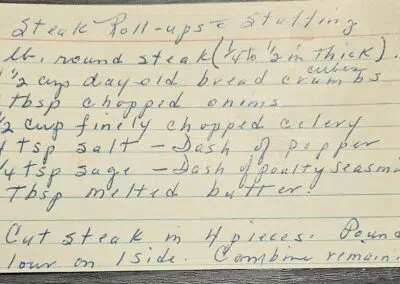 Steak Roll-ups - Stuffing
lb. round steak (1/4 to 1/2 in thick).
1/2 cup day old bread crumbs
cubes
Tbsp chopped onions
1/2 cup finely chopped celery
tsp salt - Dash of pepper
1/4 tsp sage - Dash of poultry seasoni
Tbsp melted butter.
Cut steak in 4 pieces. Pound
lour on 1 side. Combine remain